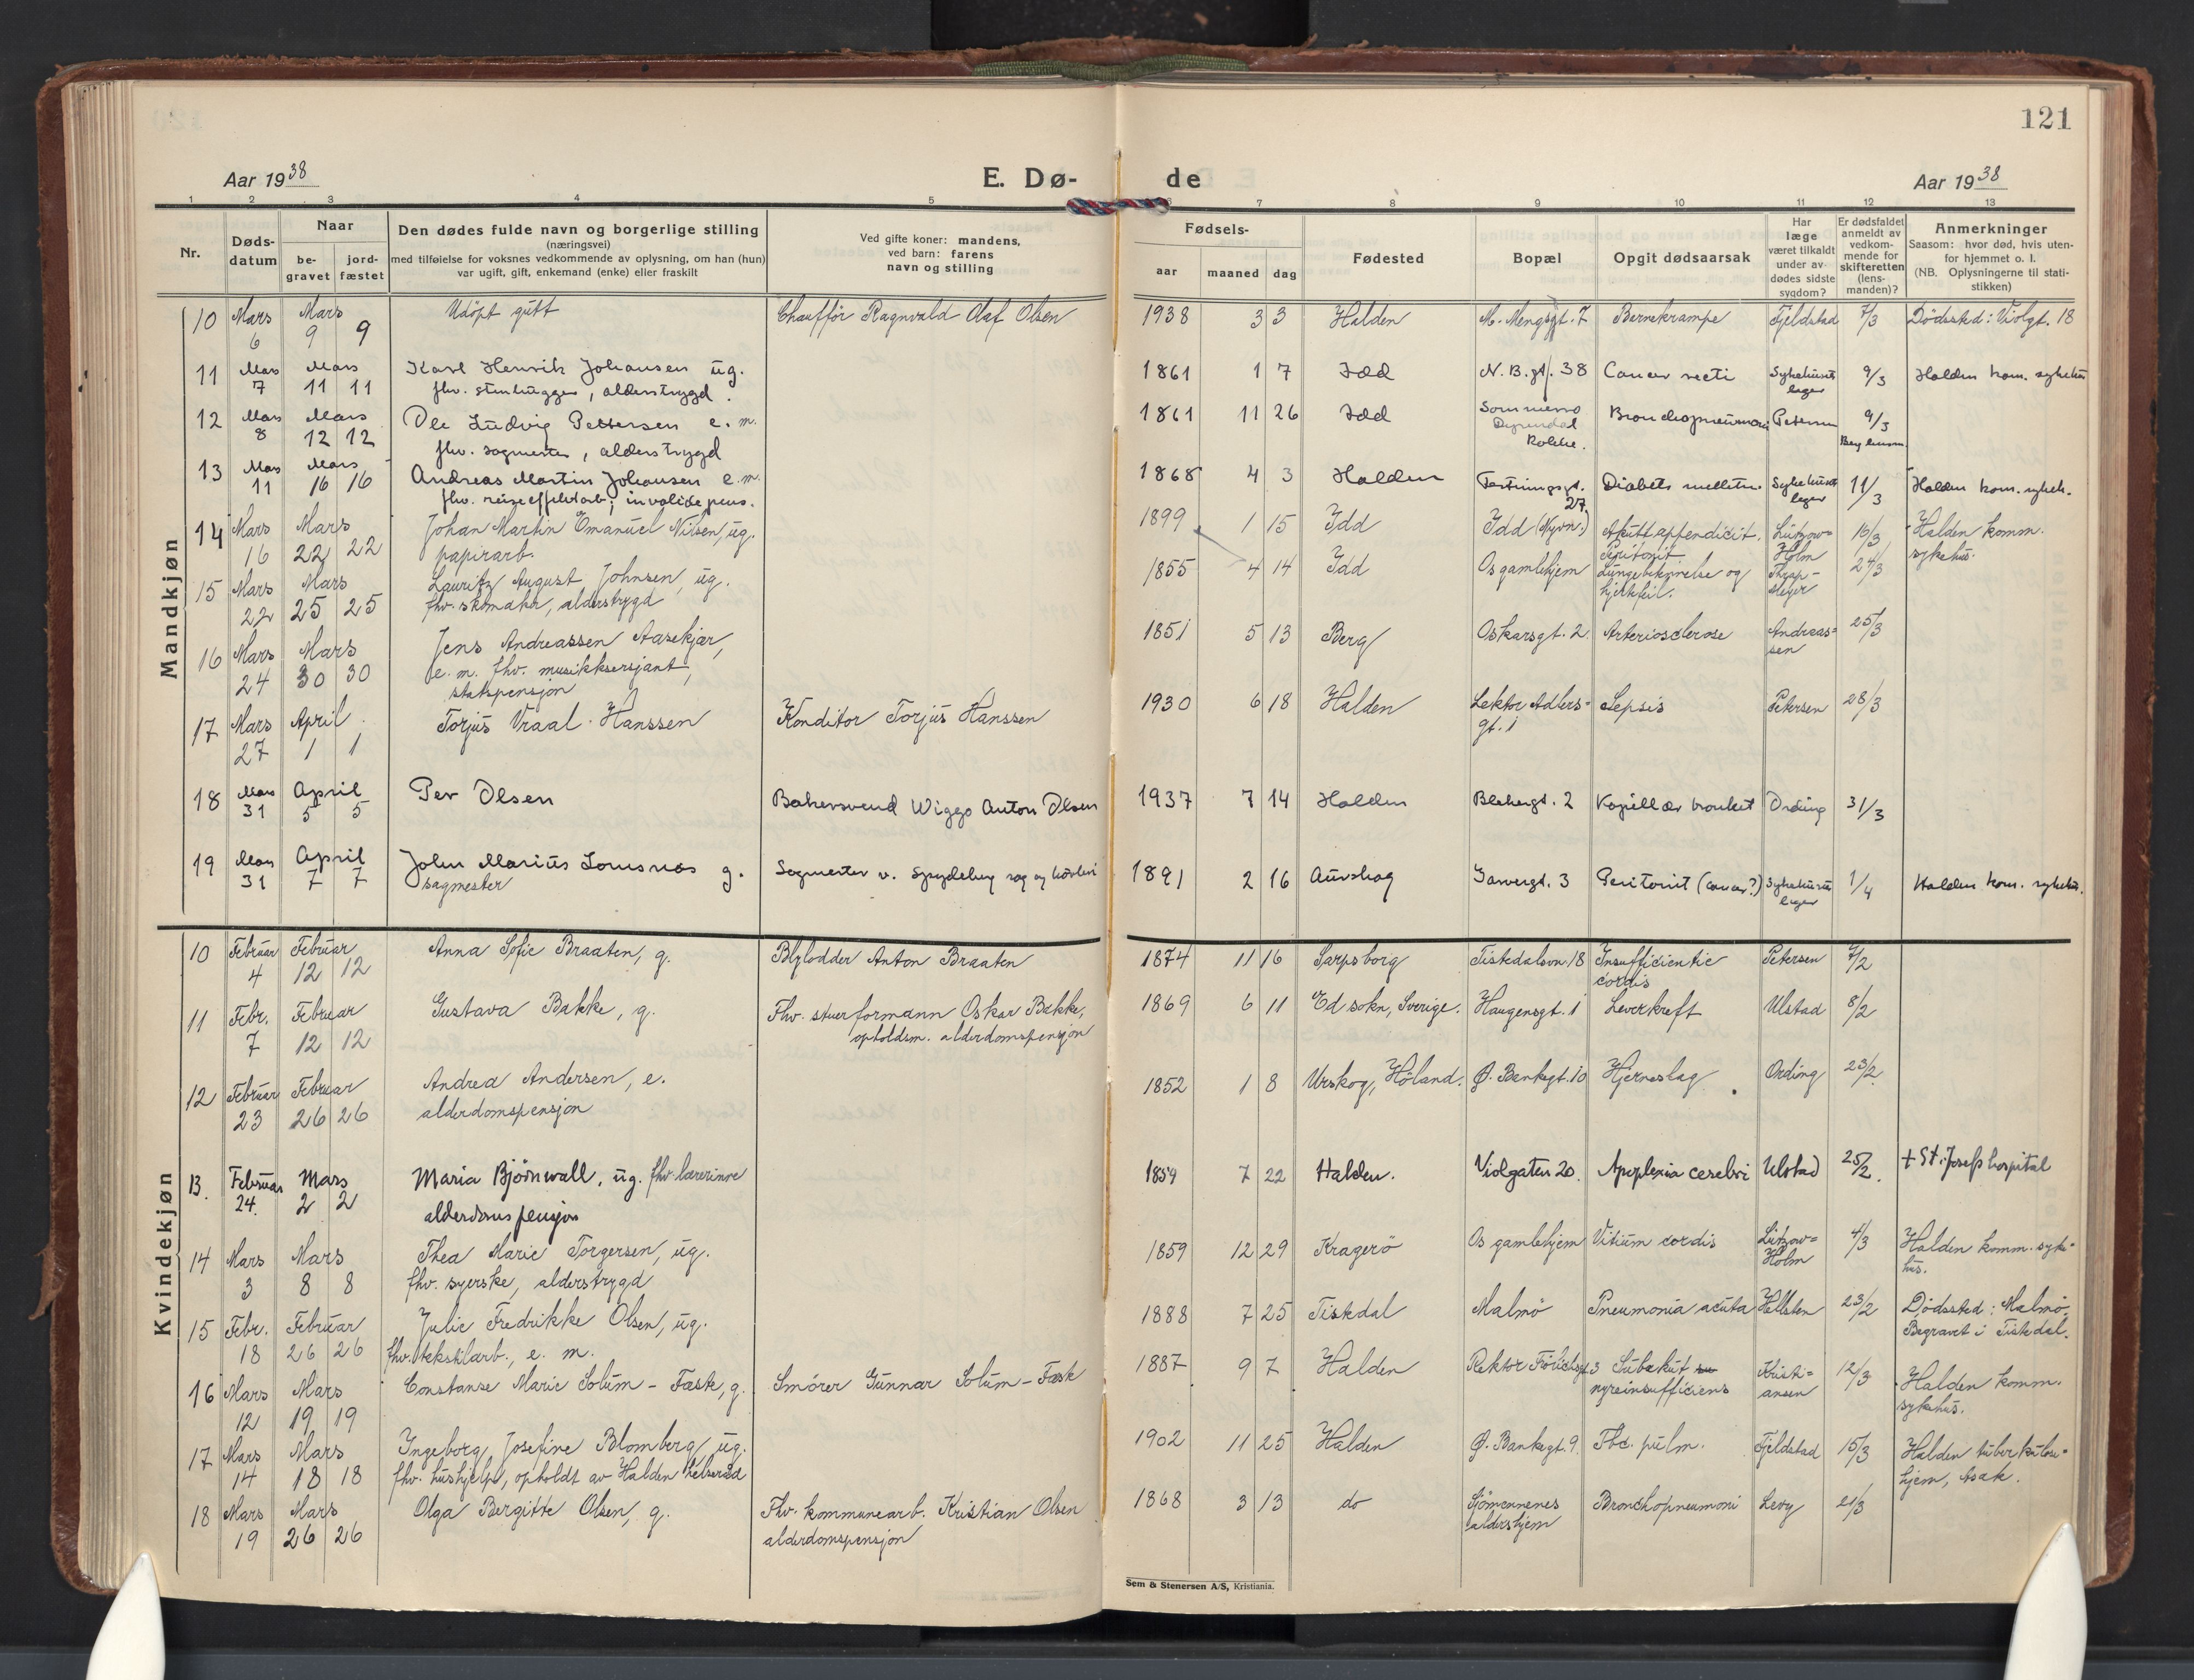 121
Aar 1938
E. Dø-
de
Aar 1938
1 2 3 4 5 6 7 8 9 10 11 12 13
Nr.
Døds-
datum
Naar
be-
gravet
jord-
fæstet
Den dødes fulde navn og borgerlige stilling
(næringsvei)
med tilføielse for voksnes vedkommende av oplysning, om han (hun)
var ugift, gift, enkemand (enke) eller fraskilt
Ved gifte koner: mandens,
ved barn: farens
navn og stilling
Fødsels-
aar
maaned
dag
Fødested
Bopæl
Opgit dødsaarsak
Har
læge
været tilkaldt
under av-
dødes sidste
sygdom?
Er dødsfaldet
anmeldt av
vedkom-
mende for
skifteretten
(lens-
manden)?
Anmerkninger
Saasom: hvor død, hvis uten-
for hjemmet o. l.
(NB. Oplysningerne til stati-
stikken)
Mandkjøn
10 Mars Mars Udöpt gutt Chaufför Ragnvald Olaf Olsen 1938 3 3 Halden M. Mengsgt. 7 Barnekrampe Fjeldstad 7/3 Dödssted: Violgt. 18
6 9 9
11 Mars Mars Karl Henrik Johansen ug. 1861 1 7 Idd N. B. gt. 38 Cancer recti Sykehusets 9/3 Halden kom. sykehus
7 11 11 fhv. stenhugger, alderstrygd. læger
12 Mars Mars Ole Ludvig Pettersen e. m. 1861 11 26 Idd Sommerro Bronchopneumoni Petersen 9/3
8 12 12 fhv. sagmester, alderstrygd Rokke. Berg lensm.
13 Mars Mars Andreas Martin Johansen e. m. 1868 4 3 Halden Festningsgt. Diabetes mellitus Sykehusets 11/3 Halden kom. sykeh.
11 16 16 fhv. reiseeffektarb; invalidepens. 27 læger
14 Mars Mars Johan Martin Emanuel Nilsen, ug. 1899 1 15 Idd Idd (Nyvn.) Akutt appendicit. Lützow- Halden komm.
16 22 22 papirarb. Peritonit Holm sykehus.
15 Mars Mars Lauritz August Johnsen, ug. 1855 4 14 Idd Os gamlehjem Lungebetennelse og Thrap- 24/3
22 25 25 fhv. skomaker, alderstrygd hjertefeil. Meyer
16 Mars Mars Jens Andreassen Aasekjær, 1851 5 13 Berg Oskarsgt. 2. Arteriosclerose Andreas= 25/3
24 30 30 e. m. fhv. musikksersjant, sen
statspensjon
17 Mars April Torjus Vraal Hanssen Konditor Torjus Hanssen 1930 6 18 Halden Lektor Adlers- Sepsis Petersen 28/3
27 1 1 gt. 1
18 Mars April Per Olsen Bakersvend Wiggo Anton Olsen 1937 7 14 Halden Blekergt. 2 Kapillær bronkit Ording 31/3
31 5 5
19 Mars April John Marius Lomsnes g. Sagmester v. Spydeberg sag og høvleri 1891 2 16 Aurskog Garvergt. 3 Peritonit (cancer?) Sykehusets 1/4 Halden kom. sykehus.
31 7 7 sagmester læger
Kvindekjøn
10 Februar Februar Anna Sofie Braaten, g. Blylodder Anton Braaten 1874 11 16 Sarpsborg Tistedalsvn. 18 Insufficientie Petersen 7/2
4 12 12 cordis
11 Febr. Februar Gustava Bakke, g. Fhv. stuerformann Oskar Bakke, 1869 6 11 Ed sokn, Sverige. Haugensgt. 1 Leverkreft Ulstad 8/2
7 12 12 opholdsm. alderdomspensjon
12 Februar Februar Andrea Andersen, e. 1852 1 8 Urskog, Höland. Ø. Bankegt. 10 Hjerneslag Ording 23/2
23 26 26 alderdomspensjon
13. Februar Mars Maria Björnwall, ug. fhv. lærerinne 1854 7 22 Halden. Violgaten 20. Apoplexia cerebri Ulstad 25/2. + St. Josefs hospital
24. 2 2 alderdomspensjon
14 Mars Mars Thea Marie Torgersen, ug. 1859 12 29 Kragerö Os gamlehjem Vitium cordis Lützow= 4/3 Halden komm. syke=
3 8 8 fhv. syerske, alderstrygd Holm hus.
15 Febr. Februar Julie Fredrikke Olsen, ug. 1888 7 25 Tistedal Malmö Pneumonia acuta Hellsten 23/2 Dödssted: Malmö.
18 26 26 fhv. tekstilarb., e. m. Begravet i Tistedal.
16 Mars Mars Constanse Marie Solum - Fæste, g. Smörer Gunnar Solum - Fæste 1887 9 7 Halden Rektor Frölichsgt. 3 Subakut Kristi= 12/3 Halden komm.
12 19 19 nyreinsufficiens ansen sykehus.
17 Mars Mars Ingeborg Josefine Blomberg, ug. 1902 11 25 Halden Ø. Bankegt. 9. Tbc. pulm. Fjeldstad 15/3 Halden tuberkulose=
14 18 18 fhv. hushjelp, opholdt av Halden helseråd hjem, Asak.
18 Mars Mars Olga Bergitte Olsen, g. Fhv. kommunearb. Kristian Olsen 1868 3 13 do Sjömennenes Bronchopneumoni Levy 21/3
19 26 26 alderdomspensjon aldershjem
Sem & Stenersen A/S, Kristiania.